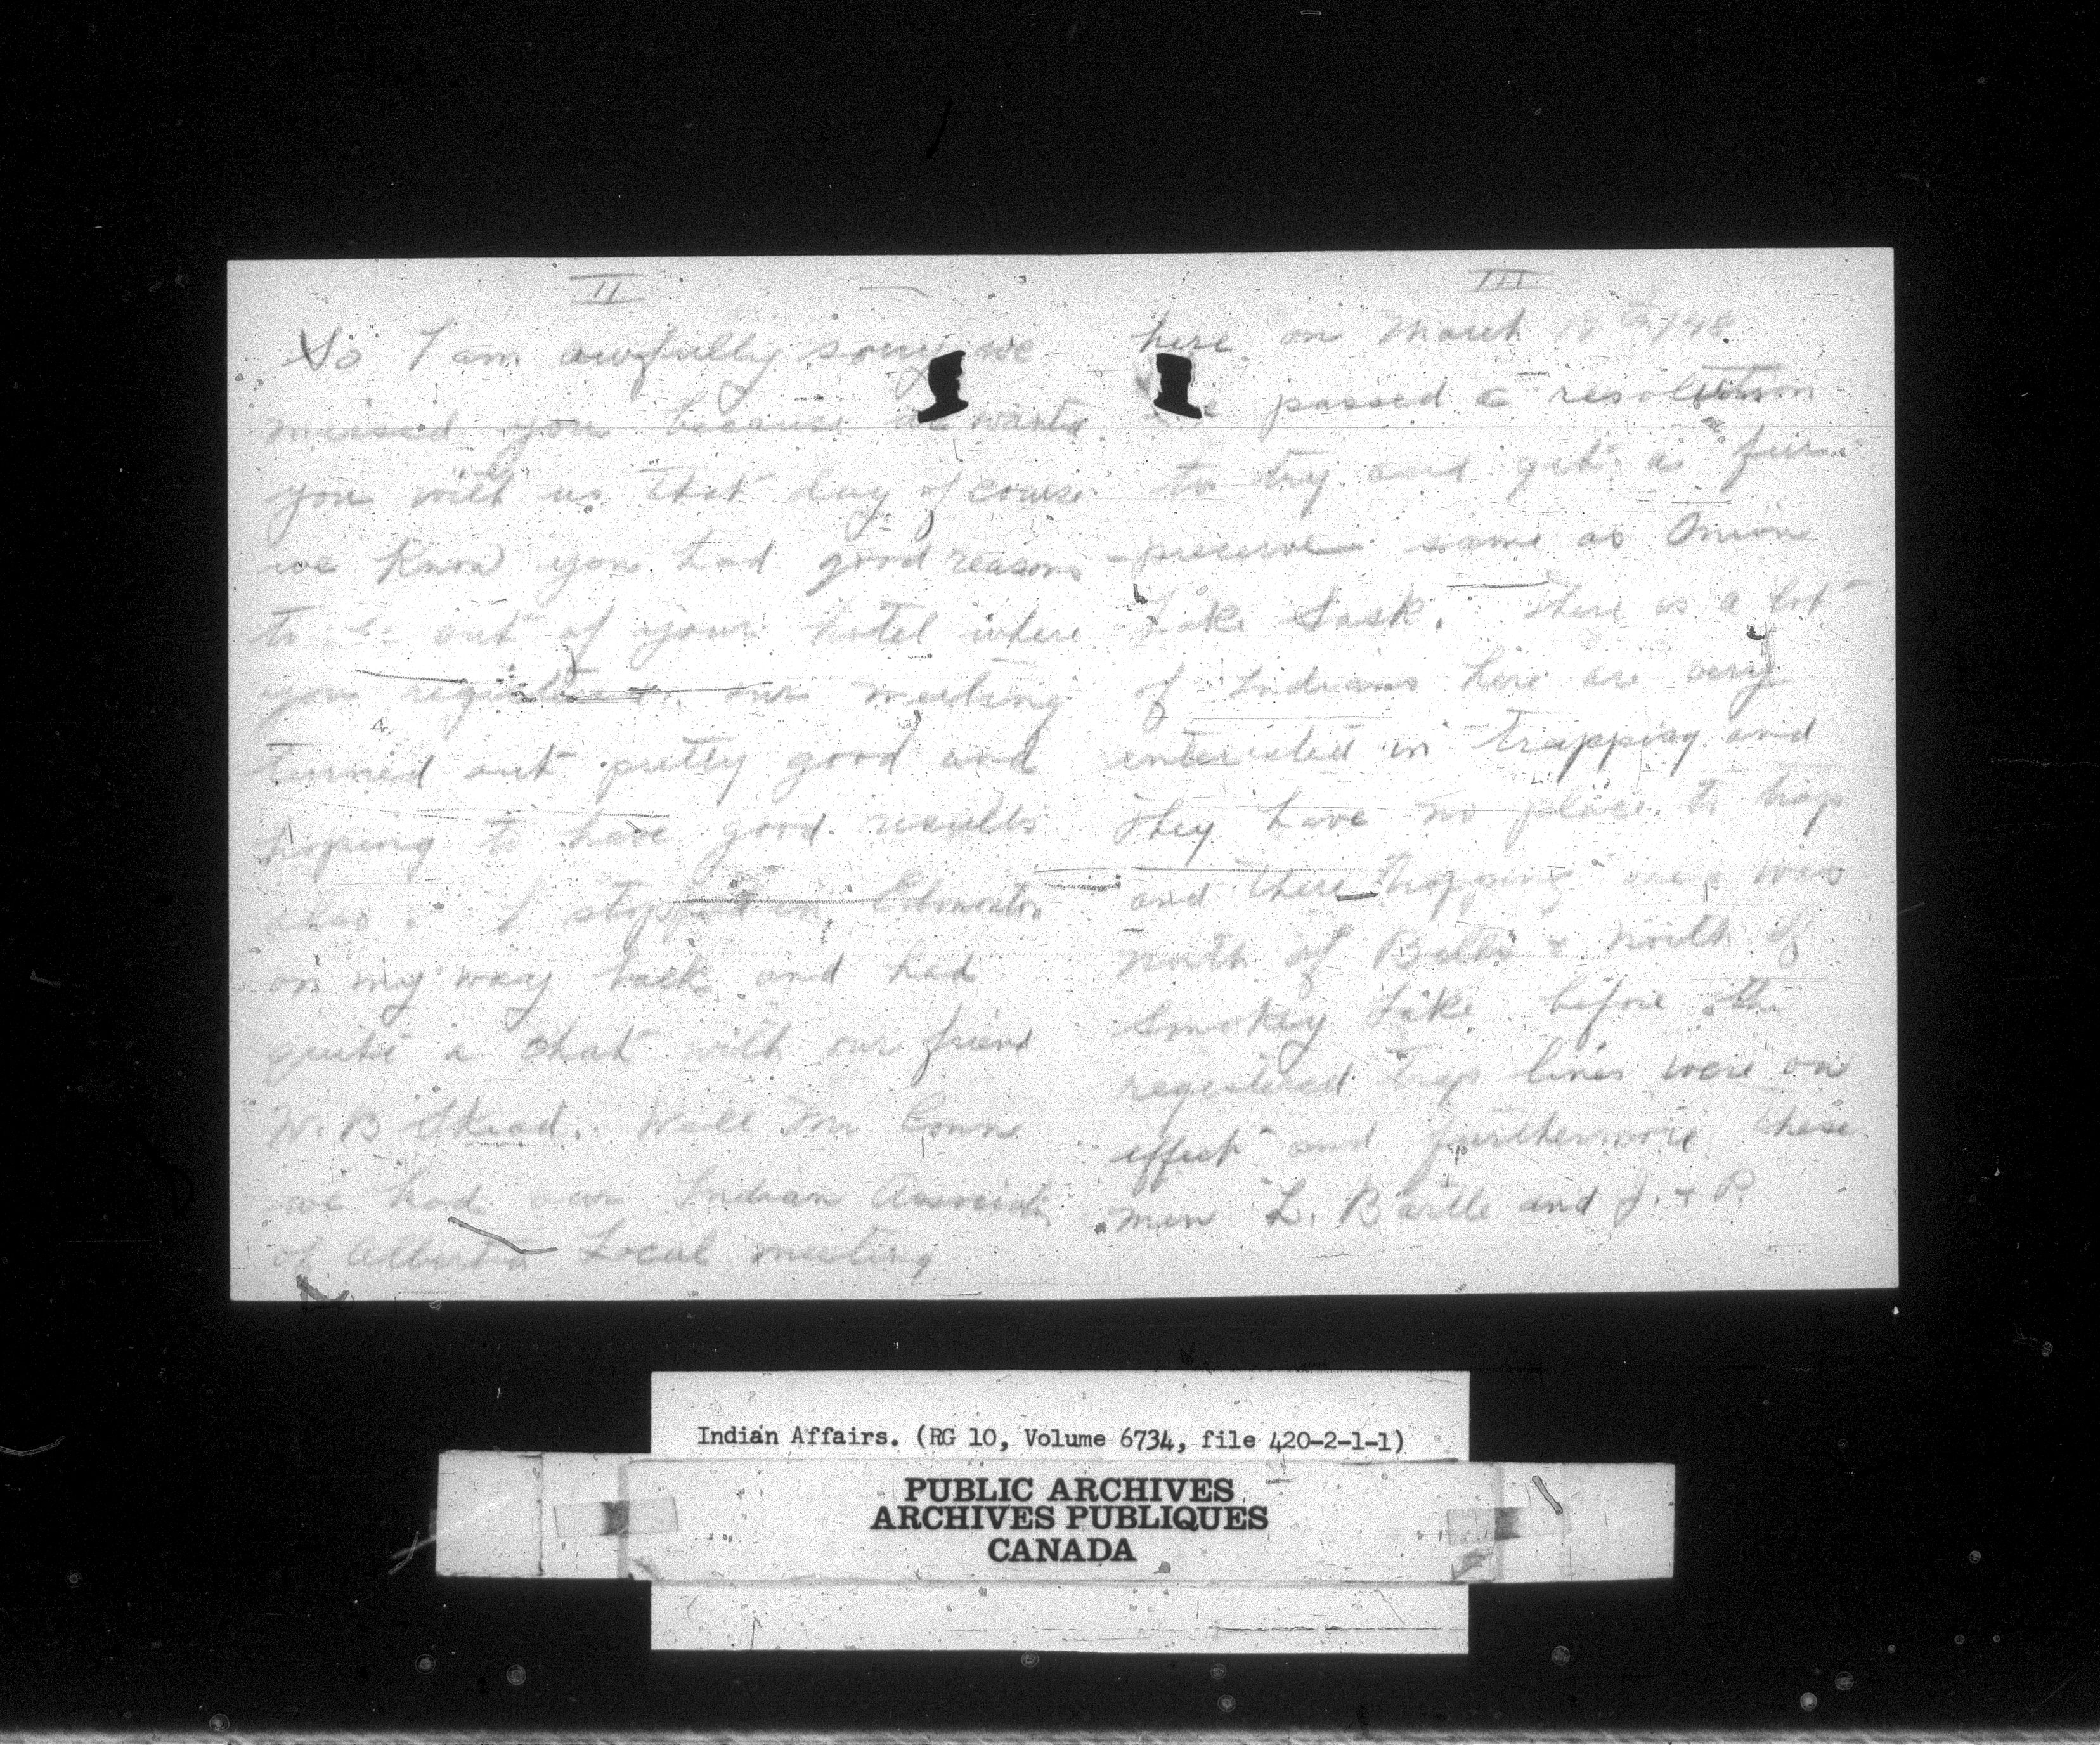 II
So I am awfully sorry we
missed you because we wanted
you with us that day of course
we know you had good reasons
to out of your hotel where
you registered. our meeting
turned out pretty good and
hoping to have good results
also. I stopped in Edmonton
on my way back and had
quite a chat with our friend
W. B Skead. Well Mr. Conn
we had our Indian Associat
of Alberta Local meeting
III
here on March
passed a resolution
to try and get a fur
preserve same as Onion
Lake Sask. There is a lot
of Indians here are very
enterested in trapping and
They have no place to trap
and there trapping area was
north of Bellis & north of
Smokey Lake before the
registered trap lines were on
effect and furthermore these
men L. Bartle and J. + P.
Indian Affairs. (RG 10, Volume 6734, file 420-2-1-1)
PUBLIC ARCHIVES
ARCHIVES PUBLIQUES
CANADA